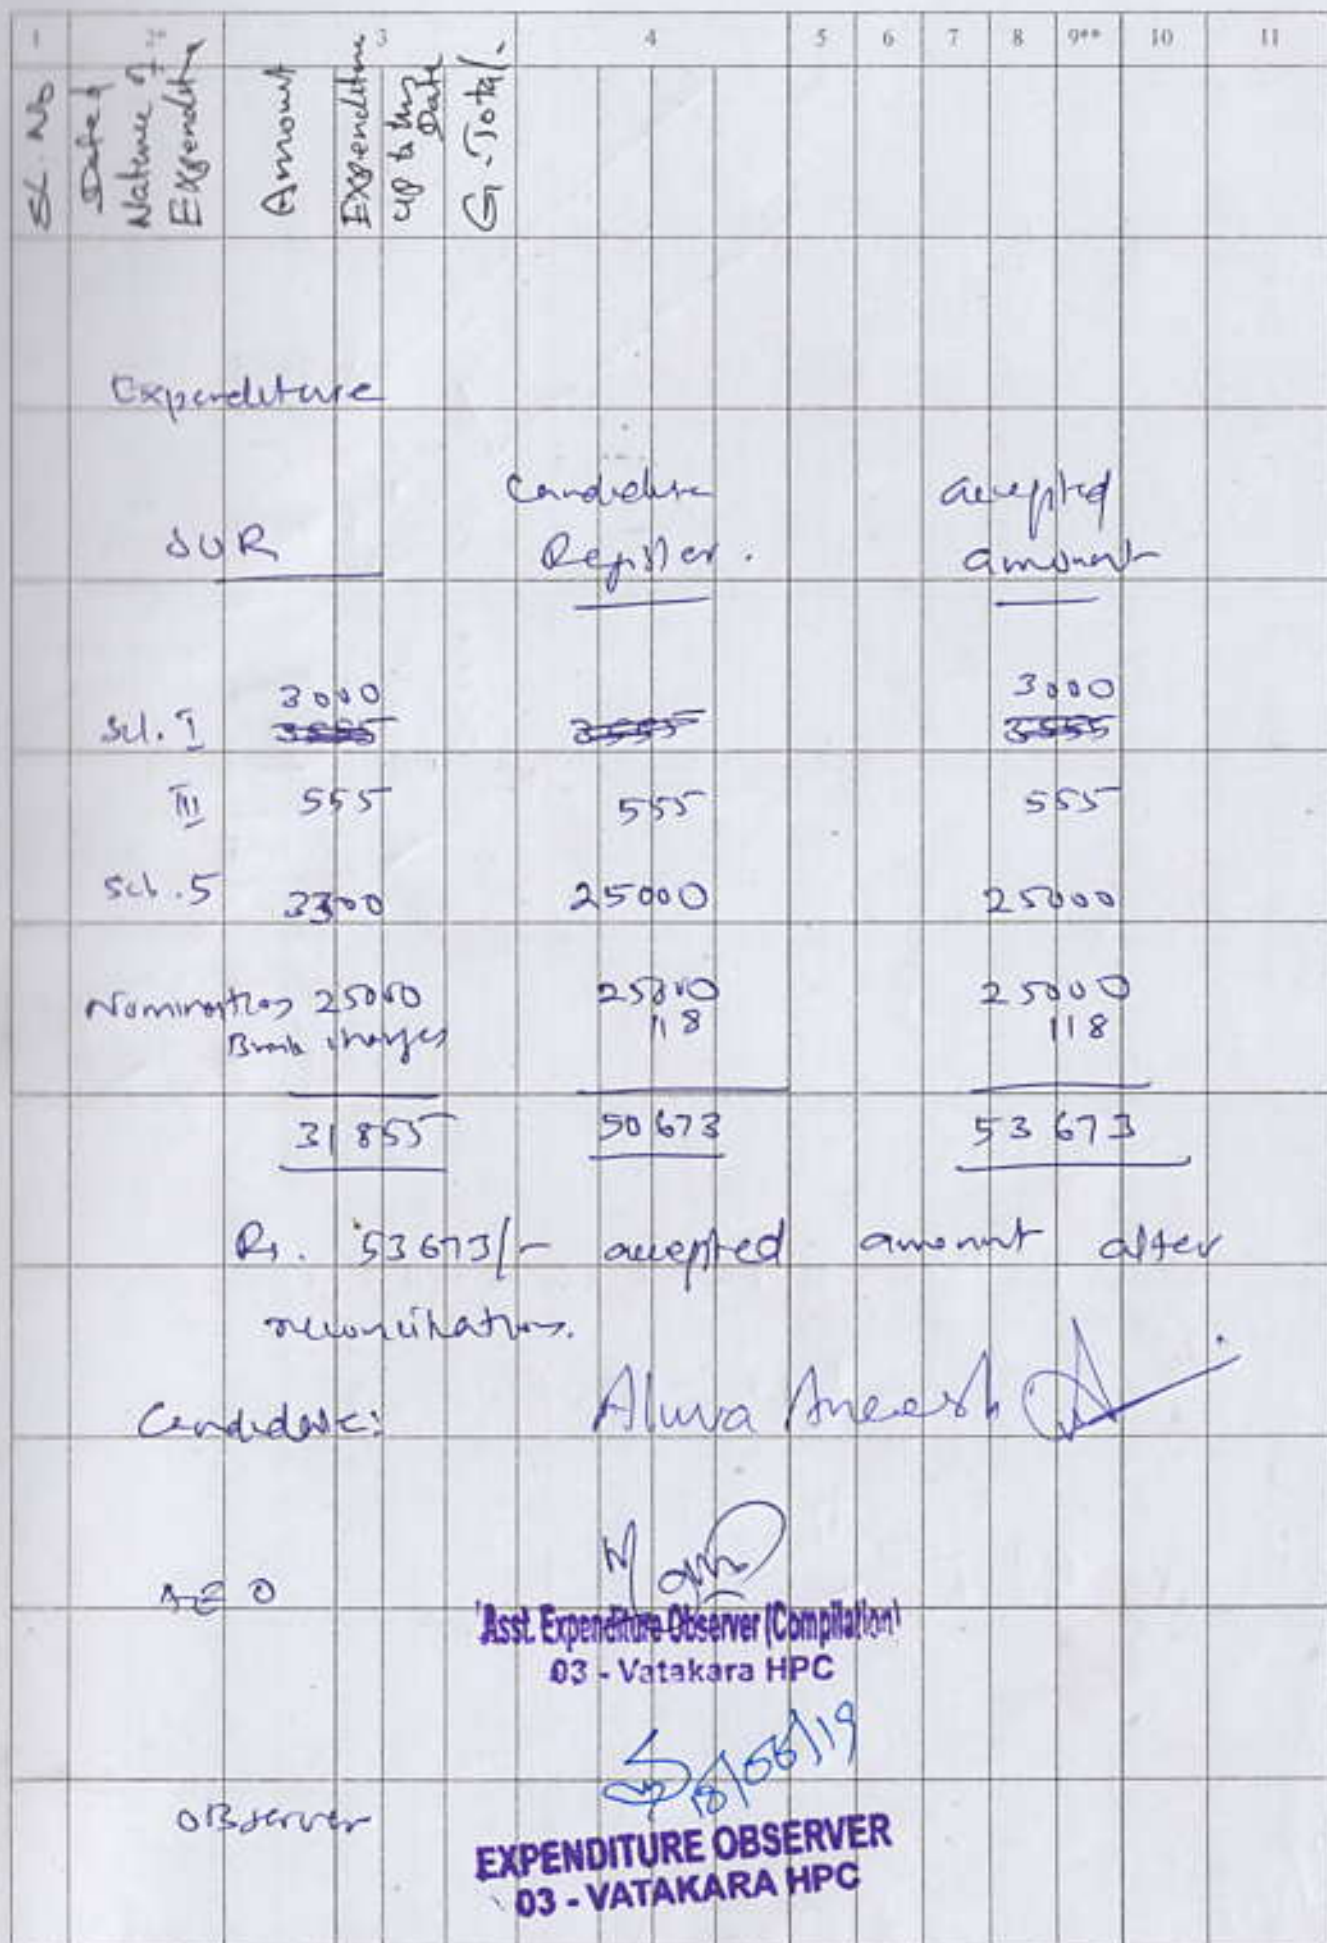 1 2* 3 4 5 6 7 8 9** 10 11
SL. No
Date &
Nature of
Expenditure
Amount
Expenditure
up to this
Date
G-Total.
Expenditure
SOR
Candidate
Register.
accepted
amount
3000 3000
Sch. I 3555 3555 3555
III 555 555 555
Sch. 5 3300 25000 25000
Nomination 25000 25000 25000
Bank charges 118 118
31855 50673 53673
Rs. 53673/- accepted amount after
reconciliation.
Candidate: Aluva Aneesh
AEO
Asst. Expenditure Observer (Compilation)
03 - Vatakara HPC
/19
OBserver
EXPENDITURE OBSERVER
03 - VATAKARA HPC